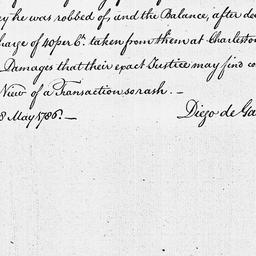 he was robbed of, and the Balance, after
of 40 per Ct. taken from them at Charleston
Damages that their exact Justice may find
View of a Transaction so rash. —
8 May 1786. — Diego de